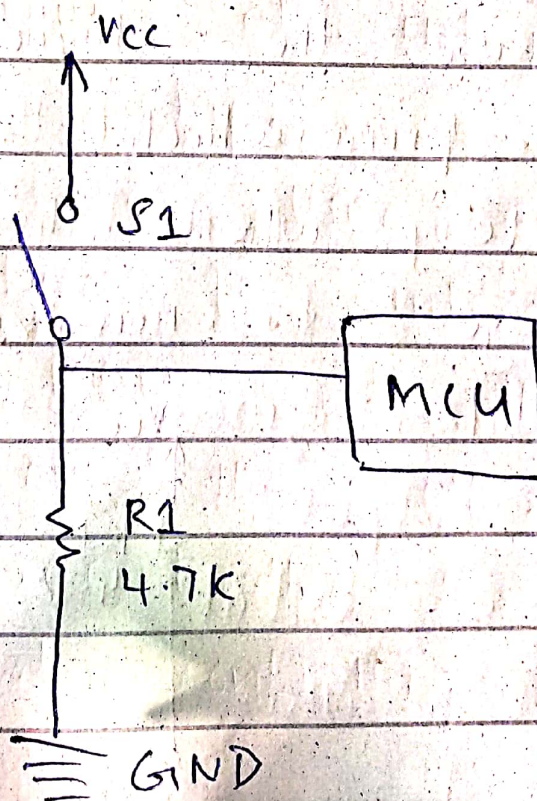 VCC
S1
MCU
R1
4.7K
GND